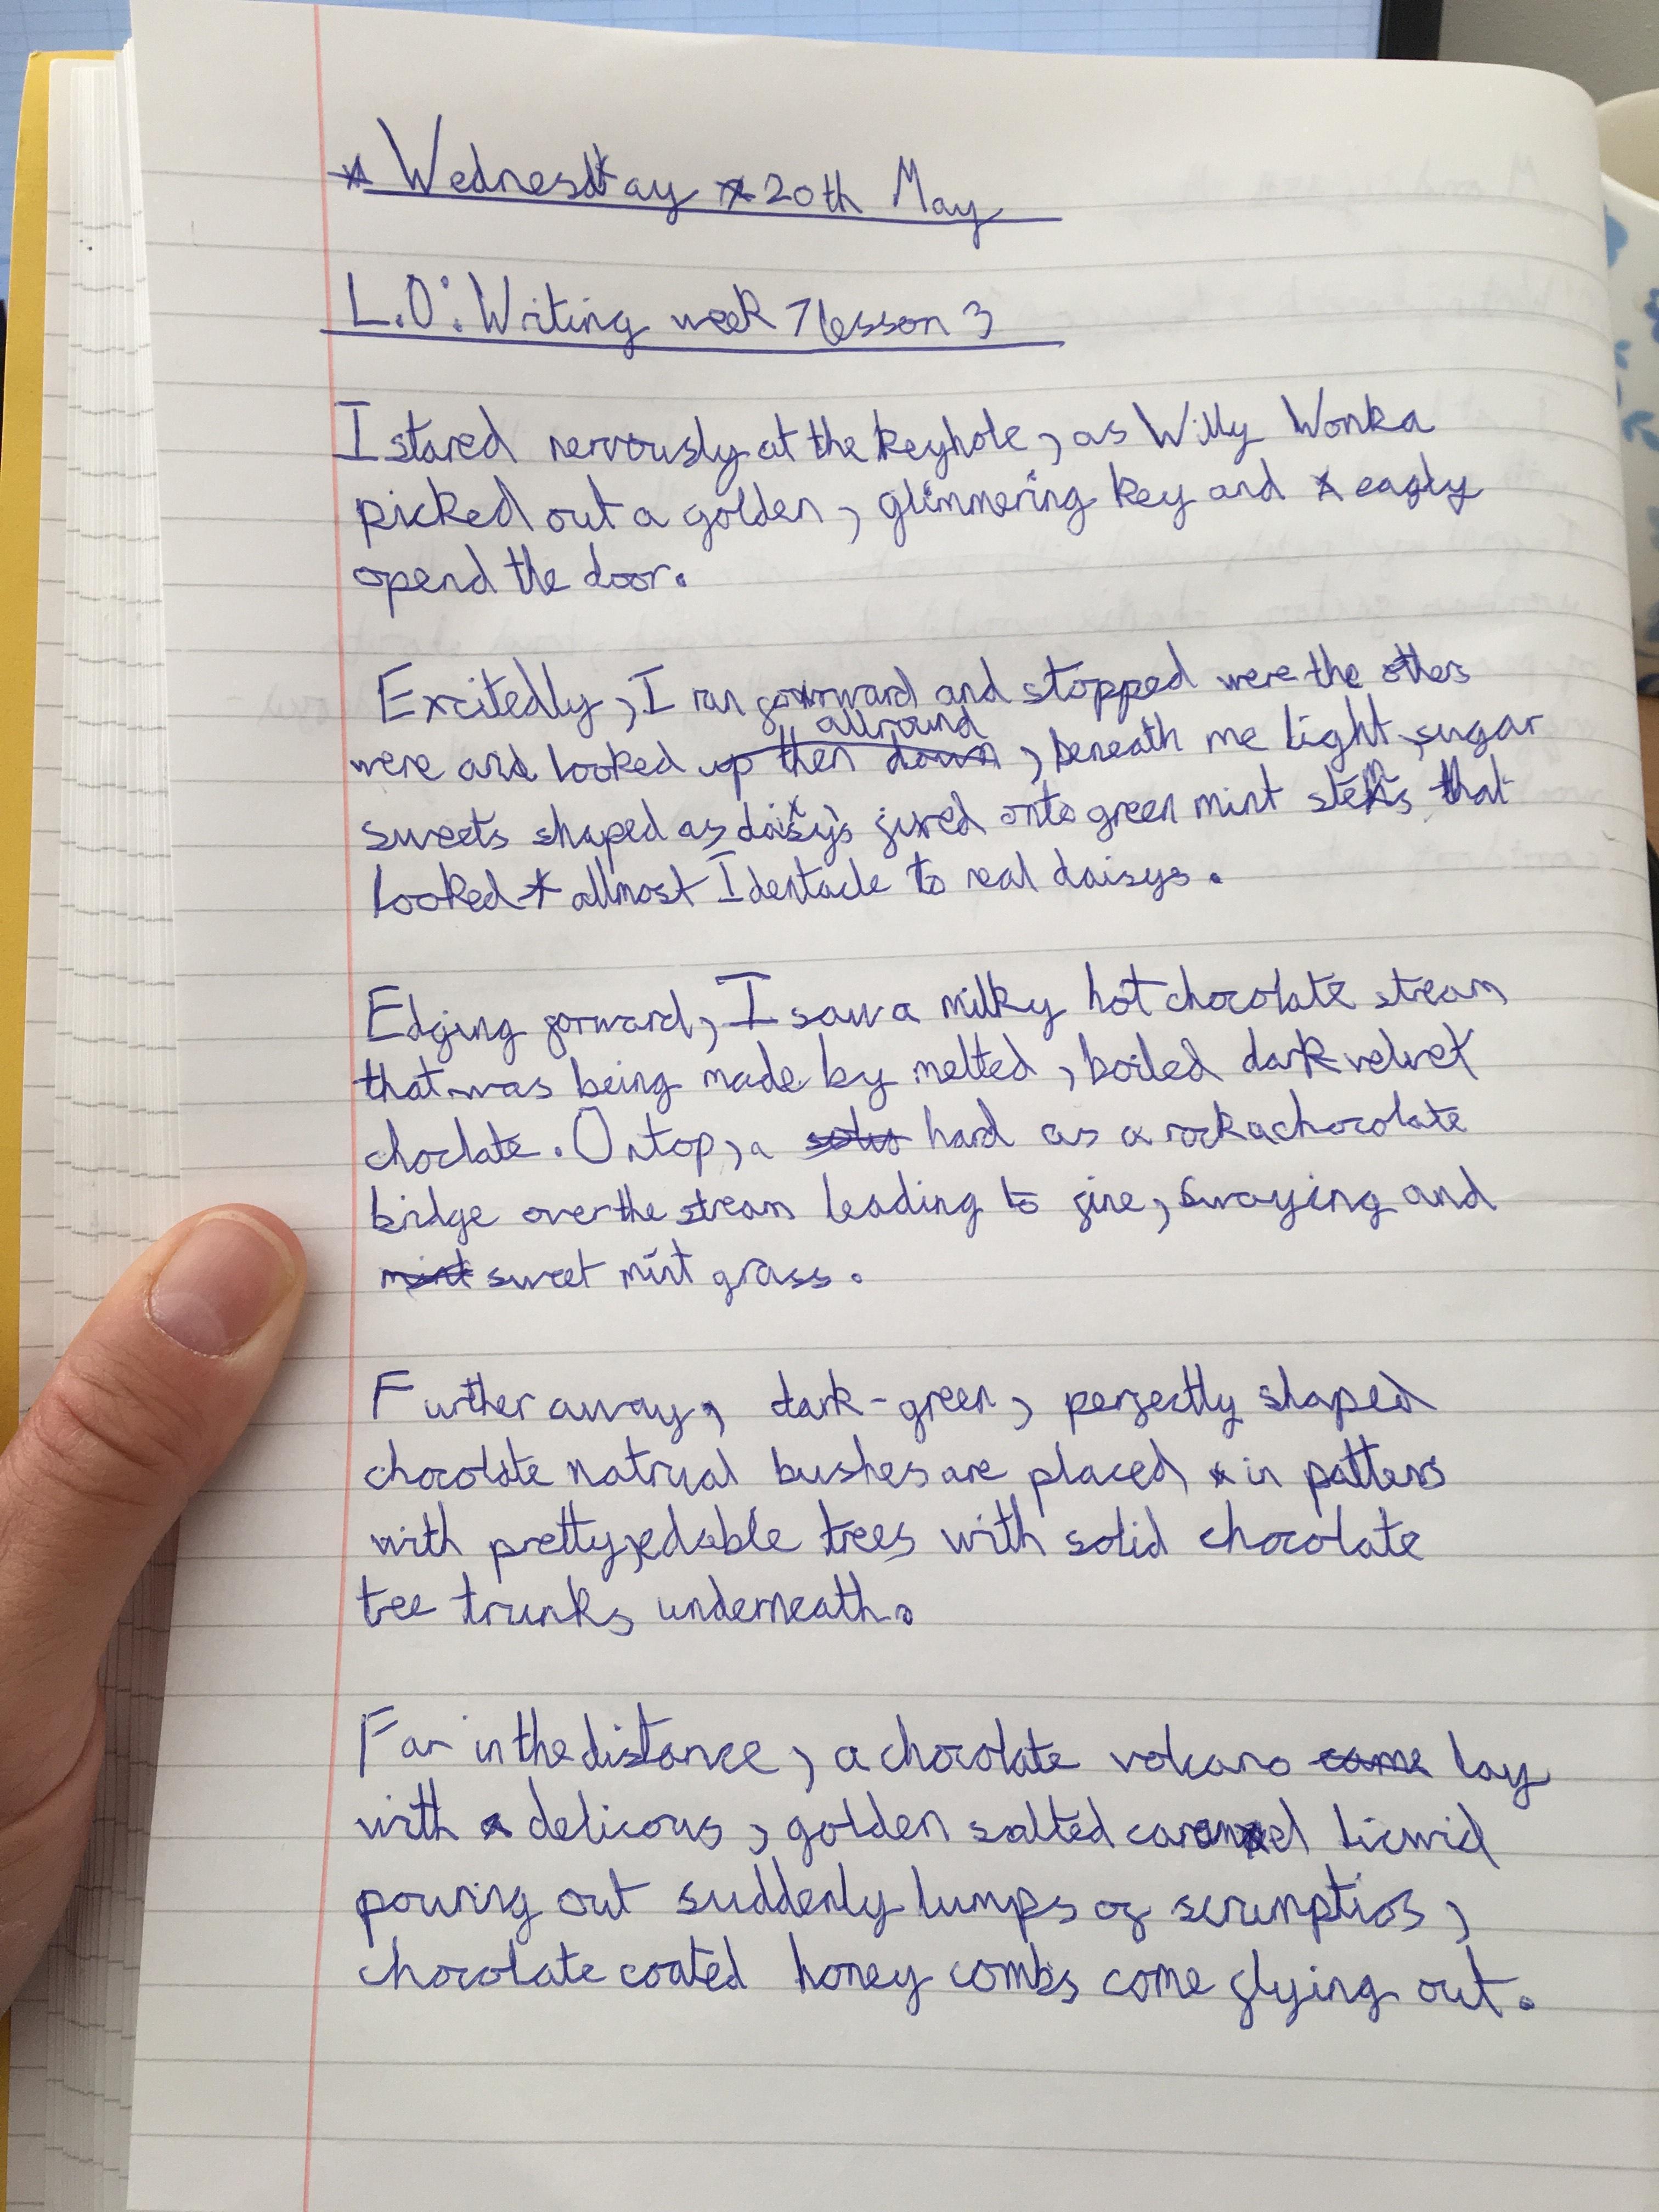 Wednesday 20th May
L.O: Writing week 7 lesson 3
I stared nervously at the keyhole, as Willy Wonka
picked out a golden, glimmering key and eagly
opend the door.
Excitedly, I ran forward and stopped were the others
allround
were and looked up then down, beneath me light, sugar
sweets shaped as daisys fixed onto green mint stems that
looked allmost Identacle to real daisys.
Edging forward, I saw a milky hot chocolate stream
that was being made by melted, boiled dark velvet
choclate. On top, a hard as a rock a chocolate
bridge over the stream leading to fine, swaying and
mint sweet mint grass.
Further away, dark-green, perfectly shaped
chocolate natryal bushes are placed in patterns
with pretty, edable trees with solid chocolate
tee trunks underneath.
Far in the distance, a chocolate volcano came lay
with delicous, golden salted caramel licwid
pouring out suddenly lumps of scrumptios,
chocolate coated honey combs come flying out.